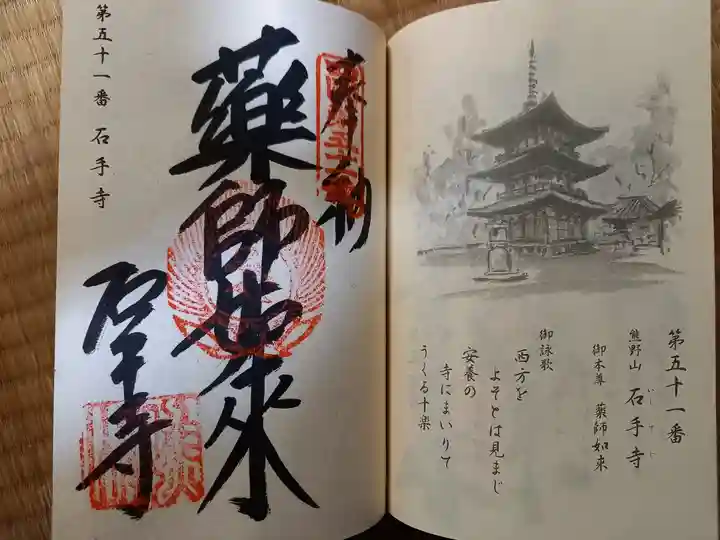 第五十一番
熊野山 石手寺
いしてじ
御本尊 薬師如来
御詠歌
西方を
よそとは見まじ
安養の
寺にまいりて
うくる十楽
奉納
薬師如来
石手寺
第五十一番 石手寺